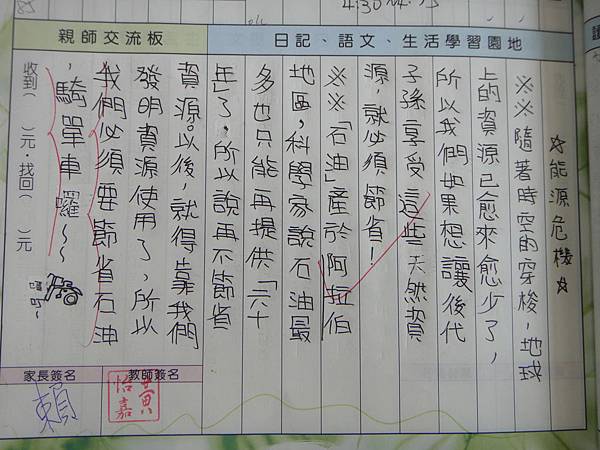 日記、語文、生活學習園地
親師交流板
☆能源危機☆
※※隨著時空的穿梭，地球
上的資源已愈來愈少了，
所以我們如果想讓後代
子孫享受這些天然資
源，就必須節省！
※※「石油」產於阿拉伯
地區，科學家說石油最
多也只能再提供「六十
年」了，所以說再不節省
資源。以後，就得靠我們
發明資源使用了，所以
我們必須要節省石油
，騎單車囉~~
收到（ ）元‧找回（ ）元
教師簽名
黃怡嘉
家長簽名
賴